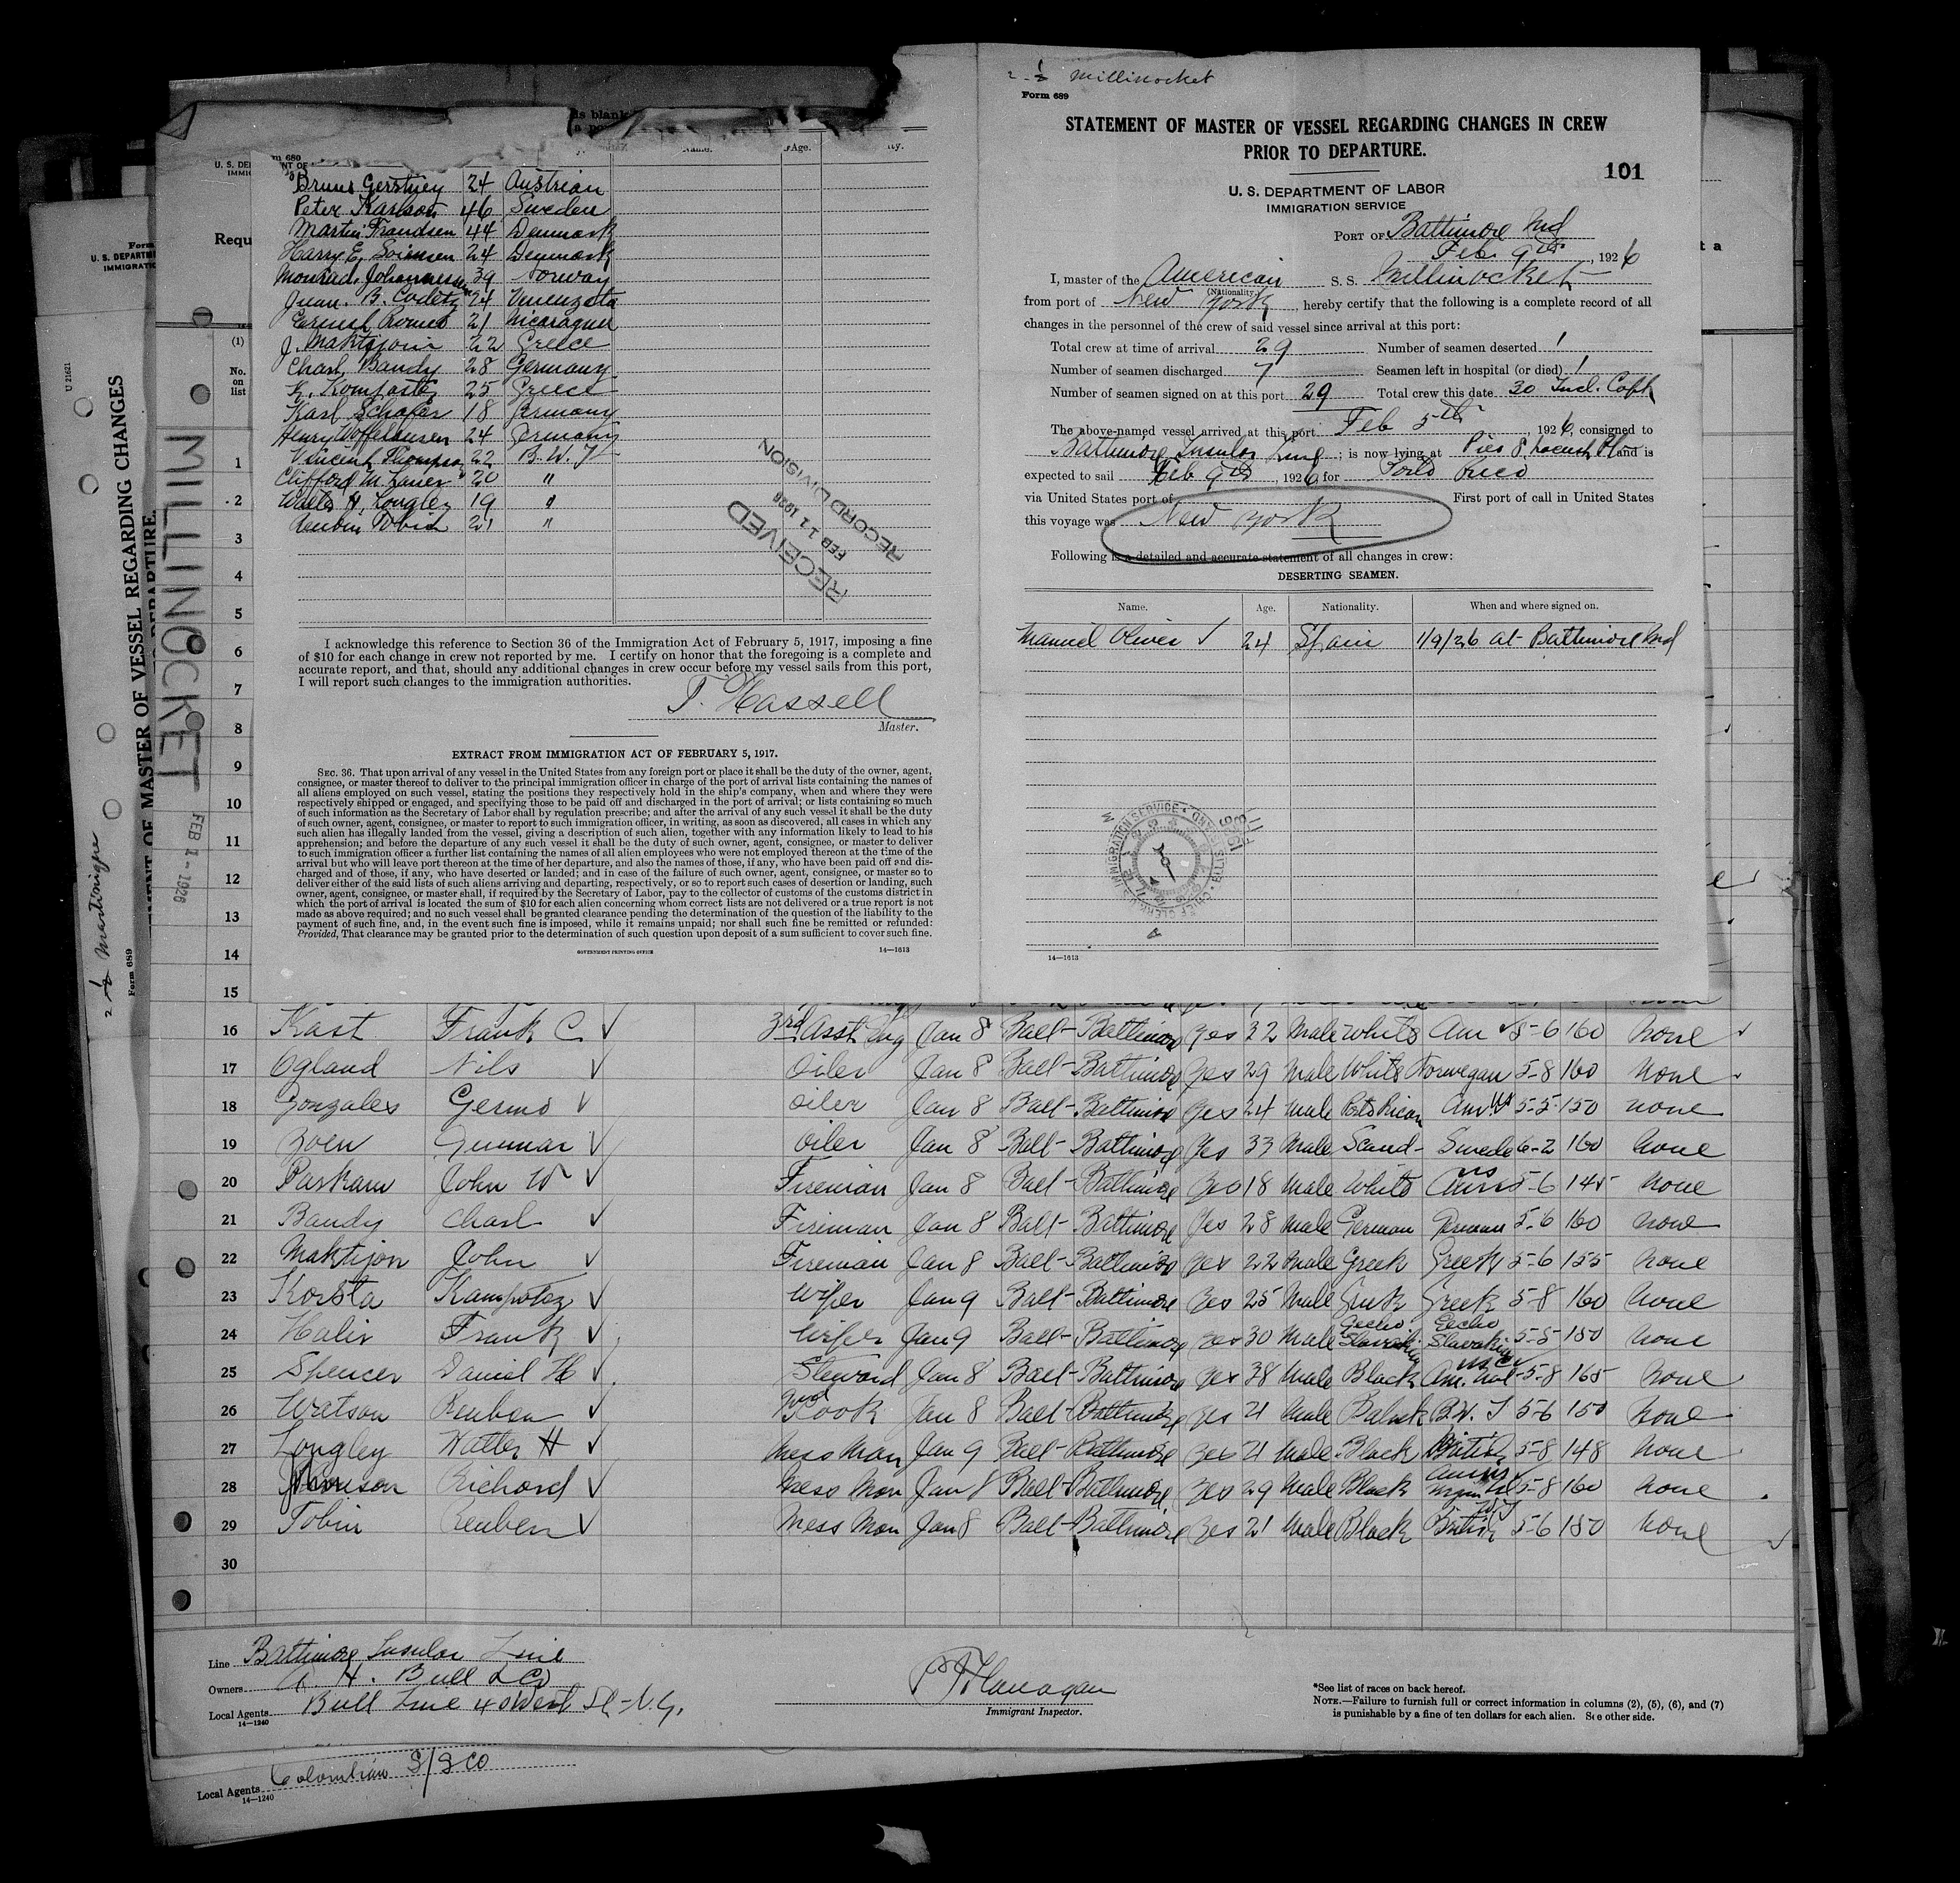 2 - 1/2 Millinocket
Form 689
STATEMENT OF MASTER OF VESSEL REGARDING CHANGES IN CREW
PRIOR TO DEPARTURE.
101
U. S. DEPARTMENT OF LABOR
IMMIGRATION SERVICE
PORT OF Baltimore Md
Feb. 9th, 1926
I, master of the American S. S. Millinocket
(Nationality.)
from port of New York, hereby certify that the following is a complete record of all
changes in the personnel of the crew of said vessel since arrival at this port:
Total crew at time of arrival 29 Number of seamen deserted 1
Number of seamen discharged 7 Seamen left in hospital (or died) 1
Number of seamen signed on at this port 29 Total crew this date 30 Incl. Capt
The above-named vessel arrived at this port Feb 5th, 1926, consigned to
Baltimore Insular Line; is now lying at Pier 8, Locust Pt and is
expected to sail Feb 9th, 1926 for Porto Rico
via United States port of First port of call in United States
this voyage was New York
Following is a detailed and accurate statement of all changes in crew:
DESERTING SEAMEN.
Name. Age. Nationality. When and where signed on.
Manuel Oliver ✓ 24 Spain 1/9/26 at Baltimore Md
14—1613
IMMIGRATION SERVICE • ELLIS ISLAND • CHIEF CLERK
Name. Age.
24 Austrian
Peter Karlson 46 Sweden
Martin Frandsen 44 Denmark
Harry E. Sorensen 24 Denmark
39 Norway
Juan. B. 24
21 Nicaragua
J. Maktijoni 22 Greece
Charl. Bandy 28 Germany
K. 25 Greece
Karl Schafer 18 Germany
Henry 24 Germany
Vincent Thompson 22 B. W. I
Clifford M. 20 "
Walter H. Longley 19 "
Reuben Tobin 21 "
RECEIVED
FEB 11 1926
RECORD DIVISION
I acknowledge this reference to Section 36 of the Immigration Act of February 5, 1917, imposing a fine
of $10 for each change in crew not reported by me. I certify on honor that the foregoing is a complete and
accurate report, and that, should any additional changes in crew occur before my vessel sails from this port,
I will report such changes to the immigration authorities.
T. Hassell
Master.
EXTRACT FROM IMMIGRATION ACT OF FEBRUARY 5, 1917.
SEC. 36. That upon arrival of any vessel in the United States from any foreign port or place it shall be the duty of the owner, agent,
consignee, or master thereof to deliver to the principal immigration officer in charge of the port of arrival lists containing the names of
all aliens employed on such vessel, stating the positions they respectively hold in the ship's company, when and where they were
respectively shipped or engaged, and specifying those to be paid off and discharged in the port of arrival; or lists containing so much
of such information as the Secretary of Labor shall by regulation prescribe; and after the arrival of any such vessel it shall be the duty
of such owner, agent, consignee, or master to report to such immigration officer, in writing, as soon as discovered, all cases in which any
such alien has illegally landed from the vessel, giving a description of such alien, together with any information likely to lead to his
apprehension; and before the departure of any such vessel it shall be the duty of such owner, agent, consignee, or master to deliver
to such immigration officer a further list containing the names of all alien employees who were not employed thereon at the time of the
arrival but who will leave port thereon at the time of her departure, and also the names of those, if any, who have been paid off and dis-
charged and of those, if any, who have deserted or landed; and in case of the failure of such owner, agent, consignee, or master so to
deliver either of the said lists of such aliens arriving and departing, respectively, or so to report such cases of desertion or landing, such
owner, agent, consignee, or master shall, if required by the Secretary of Labor, pay to the collector of customs of the customs district in
which the port of arrival is located the sum of $10 for each alien concerning whom correct lists are not delivered or a true report is not
made as above required; and no such vessel shall be granted clearance pending the determination of the question of the liability to the
payment of such fine, and, in the event such fine is imposed, while it remains unpaid; nor shall such fine be remitted or refunded:
Provided, That clearance may be granted prior to the determination of such question upon deposit of a sum sufficient to cover such fine.
GOVERNMENT PRINTING OFFICE 14—1613
U 21621
MENT OF MASTER OF VESSEL REGARDING CHANGES
MILLINOCKET
FEB 1 - 1926
2 1/2 Martinique
Form 689
(1)
No.
on
list
1
2
3
4
5
6
7
8
9
10
11
12
13
14
15
16 Kast Frank C ✓ 3rd Asst Eng Jan 8 Balt- Baltimore Yes 32 Male White Am ✓ 5-6 160 none
17 Ogland Nils ✓ Oiler Jan 8 Balt- Baltimore Yes 29 Male White Norwegian 5-8 160 none
18 Gonzales Germo ✓ Oiler Jan 8 Balt- Baltimore Yes 24 Male Porto Rican Am 5-5 150 none
19 Gunnar ✓ Oiler Jan 8 Balt- Baltimore Yes 33 Male Scand- Swede 6-2 160 none
20 John W ✓ Fireman Jan 8 Balt- Baltimore Yes 18 Male White 5-6 145 none
21 Bandy Charl ✓ Fireman Jan 8 Balt- Baltimore Yes 28 Male German German 5-6 160 none
22 Maktijon John ✓ Fireman Jan 8 Balt- Baltimore Yes 22 Male Greek Greek 5-6 155 none
23 Korsta ✓ Wiper Jan 9 Balt- Baltimore Yes 25 Male Greek Greek 5-8 160 none
24 Frank ✓ Wiper Jan 9 Balt- Baltimore Yes 30 Male 5-5 150 none
25 Spencer Daniel H ✓ Steward Jan 8 Balt- Baltimore Yes 38 Male Black Am. 5-8 165 none
26 Watson Reuben ✓ 2nd Cook Jan 8 Balt- Baltimore Yes 21 Male B.W. I 5-6 150 none
27 Longley Walter H ✓ Mess Man Jan 9 Balt- Baltimore Yes 21 Male Black British 5-8 148 none
28 Johnson Richard ✓ Mess Man Jan 8 Balt- Baltimore Yes 29 Male Black 5-8 160 none
29 Tobin Reuben ✓ Mess Man Jan 8 Balt- Baltimore Yes 21 Male Black British 5-6 150 none
30
Line Baltimore Insular Line
Owners A. H. Bull & Co
Local Agents Bull Line 40 West St - N.Y.
14—1240
Flanagan
Immigrant Inspector.
*See list of races on back hereof.
NOTE.—Failure to furnish full or correct information in columns (2), (5), (6), and (7)
is punishable by a fine of ten dollars for each alien. See other side.
Local Agents Colombian S/S Co
14—1240